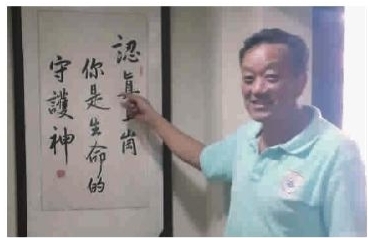 認真崗
你是生命的
守護神